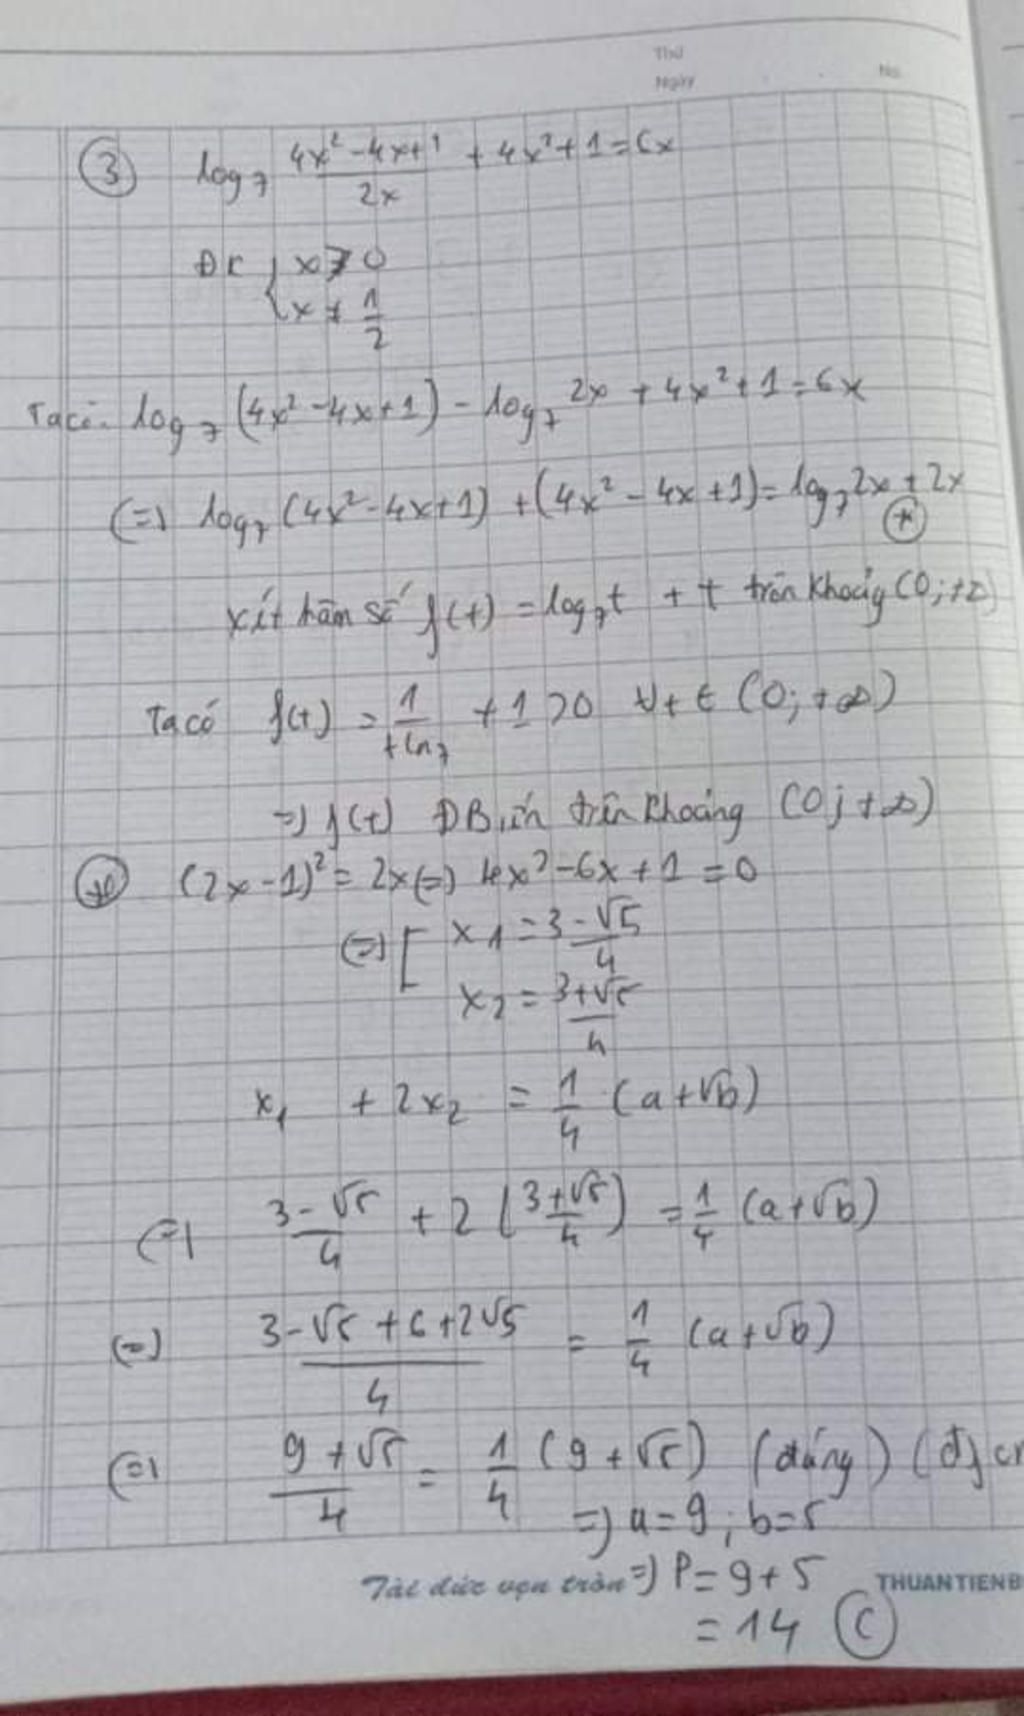 Thứ
Ngày
No.
③ log₇ (4x² - 4x + 1)/(2x) + 4x² + 1 = 6x
ĐK { x > 0
x ≠ 1/2
Ta có: log₇ (4x² - 4x + 1) - log₇ 2x + 4x² + 1 = 6x
(=) log₇ (4x² - 4x + 1) + (4x² - 4x + 1) = log₇ 2x + 2x
(*)
xét hàm số f(t) = log₇ t + t trên khoảng (0; +∞)
Ta có f(t) = 1/(t ln 7) + 1 > 0 ∀ t ∈ (0; +∞)
=) f(t) ĐBiến trên khoảng (0; +∞)
(*) (2x - 1)² = 2x (=) 4x² - 6x + 1 = 0
(=) [ x₁ = (3 - √5)/4
x₂ = (3 + √5)/4
x₁ + 2x₂ = 1/4 (a + √b)
(=) (3 - √5)/4 + 2 ((3 + √5)/4) = 1/4 (a + √b)
(=) (3 - √5 + 6 + 2√5)/4 = 1/4 (a + √b)
(=) (9 + √5)/4 = 1/4 (9 + √5) (đúng) (đ
=) a = 9; b = 5
Tài đức vẹn tròn =) P = 9 + 5 THUANTIENB
= 14 Ⓒ